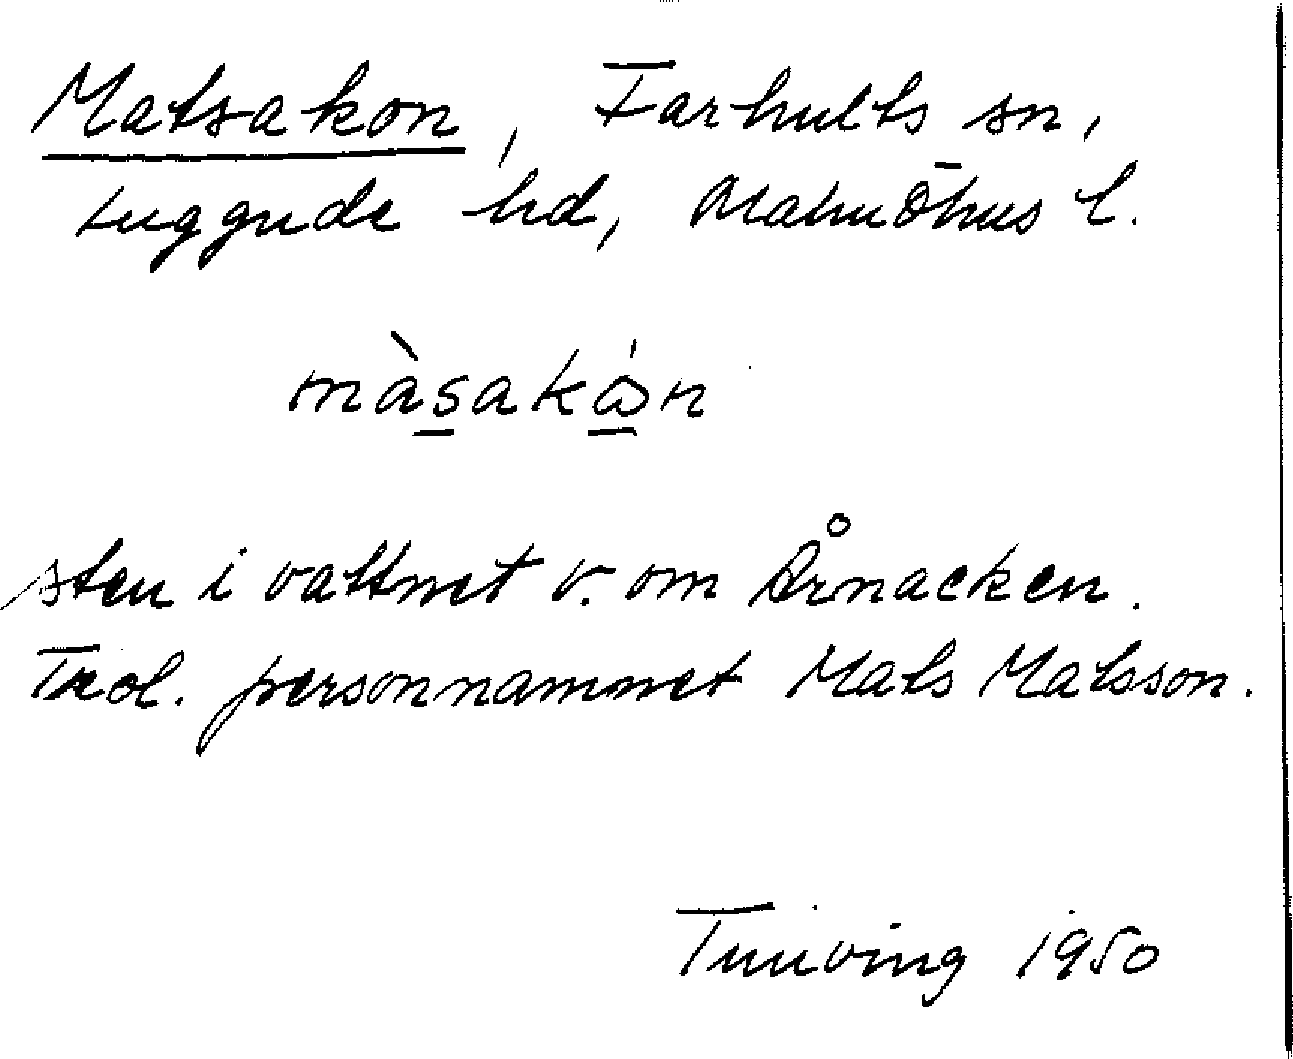 Matsakon, Farhults sn,
Luggude hd, Malmöhus l.
màsakån
sten i vattnet v. om Årnacken.
Trol. personnamnet Mats Matsson.
1950